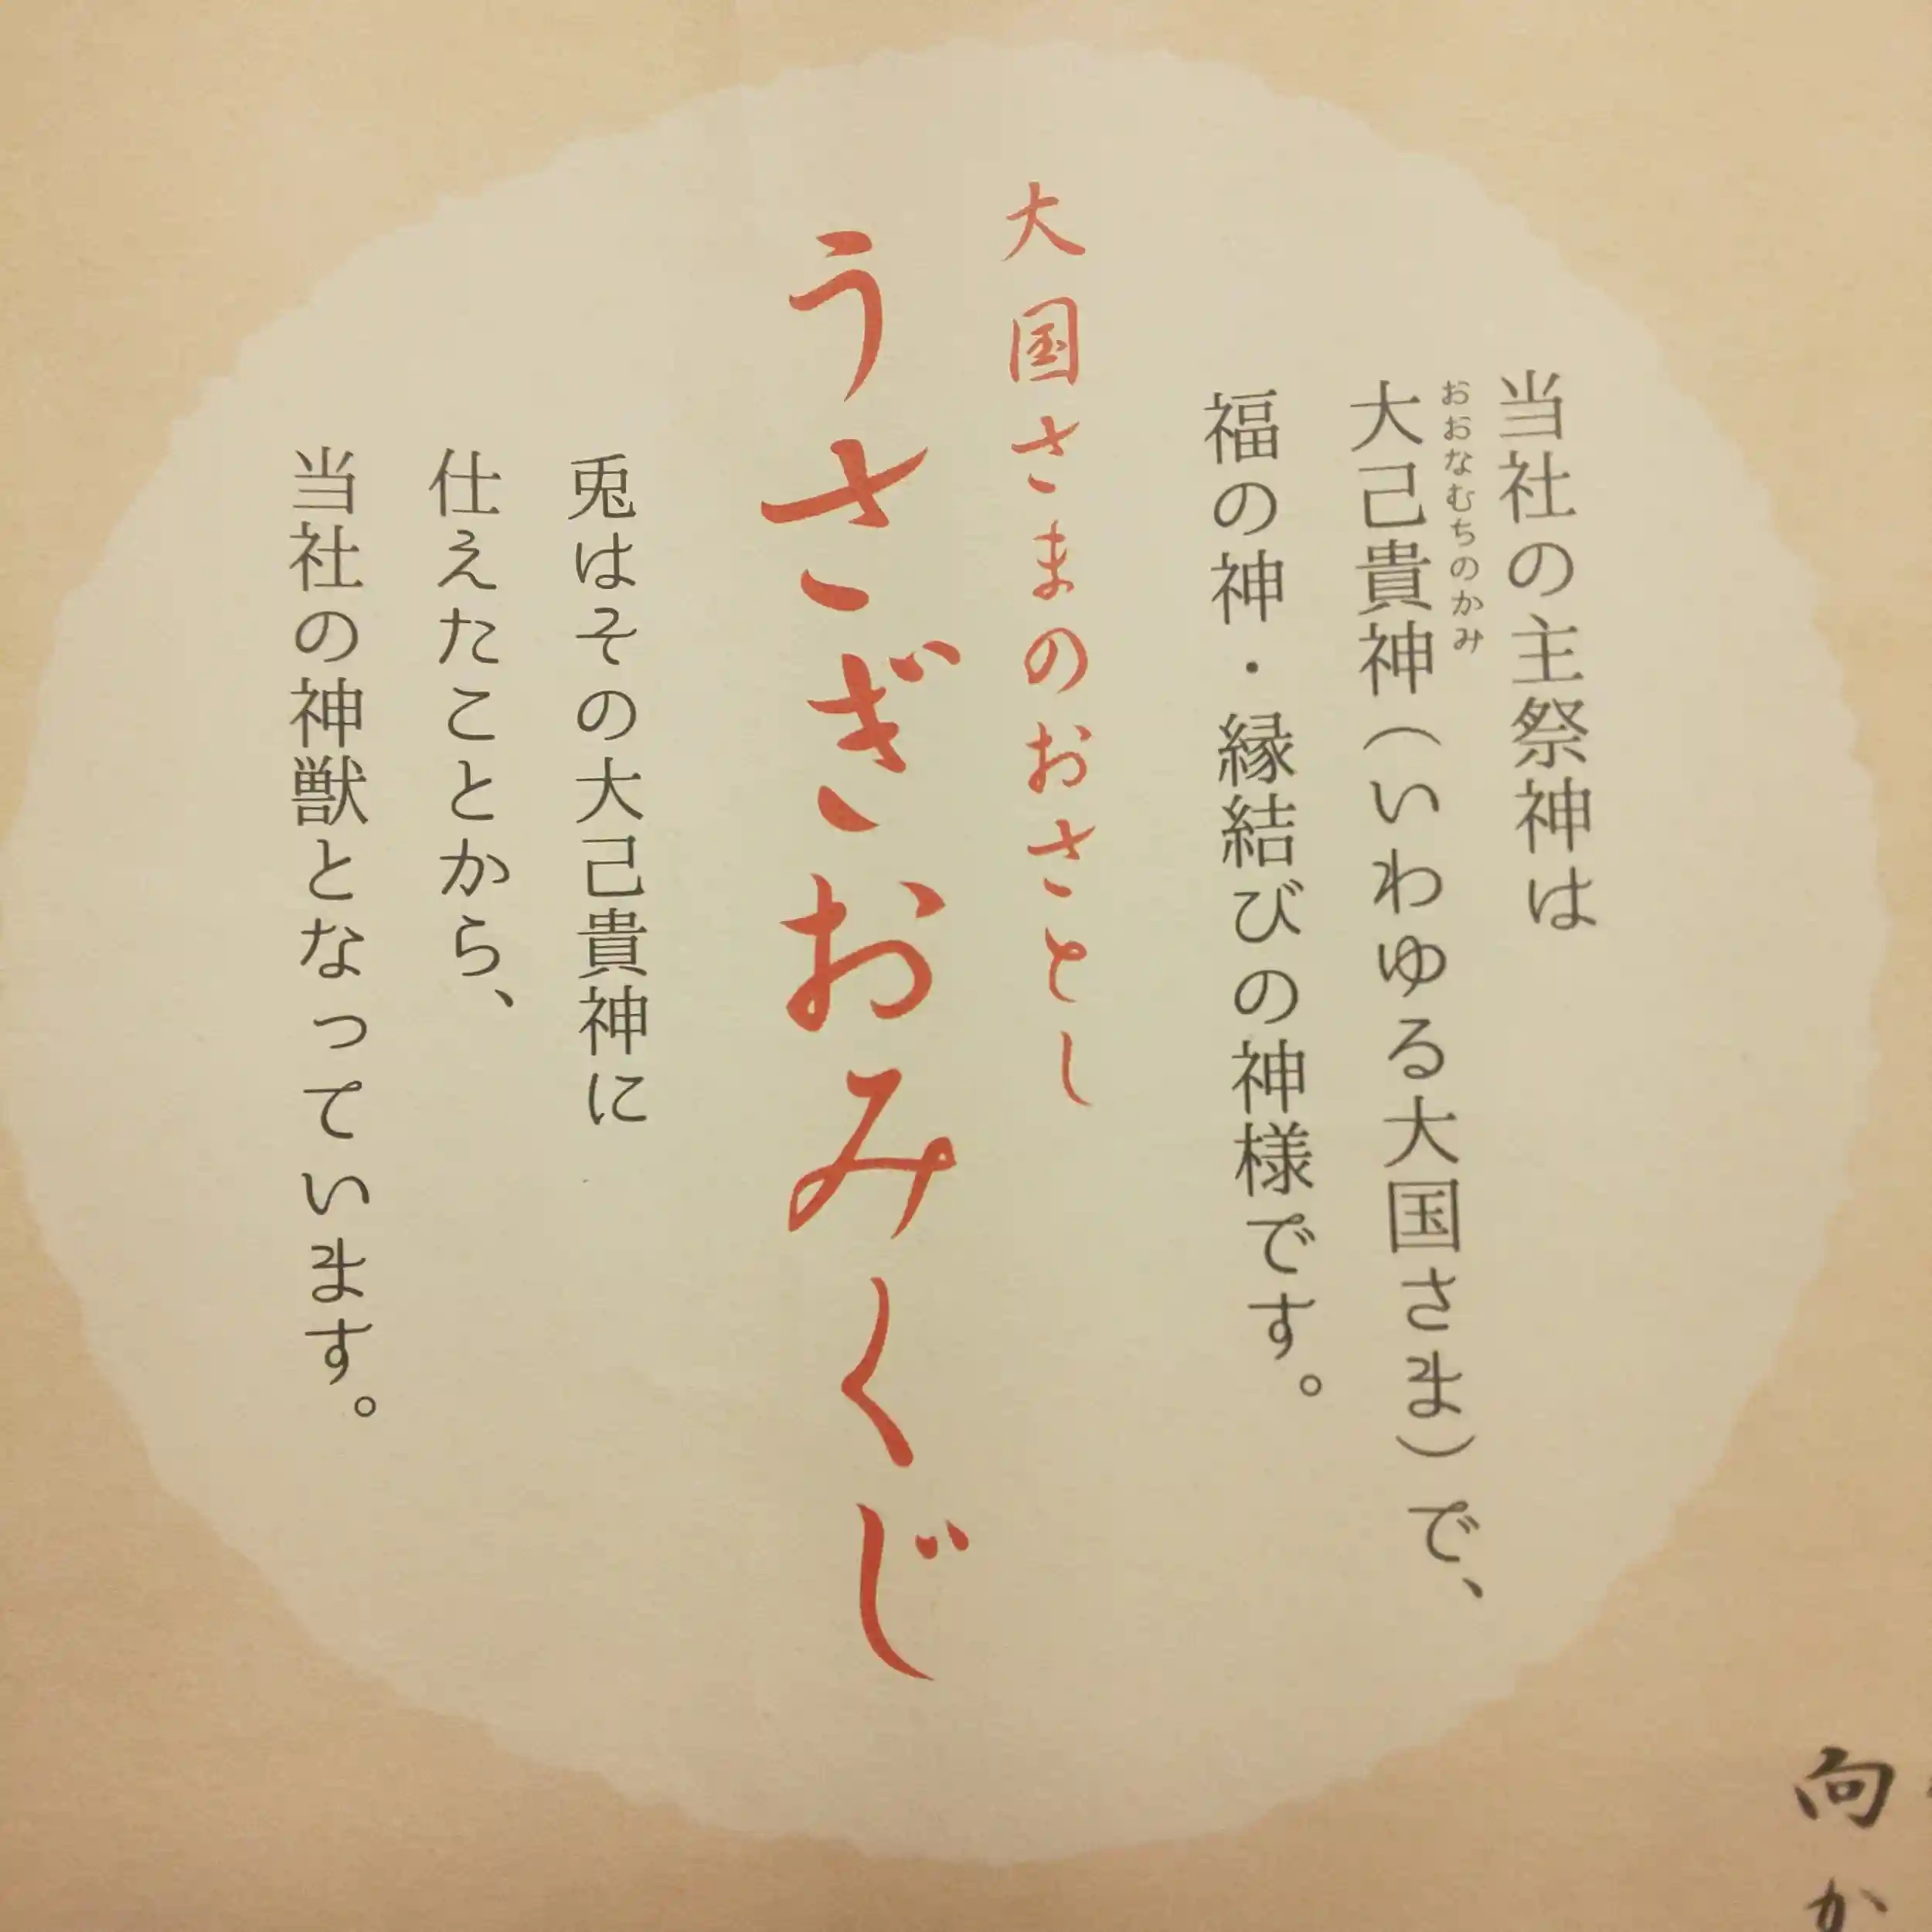 当社の主祭神は
おおなむちのかみ
大己貴神（いわゆる大国さま）で、
福の神・縁結びの神様です。
大国さまのおさとし
うさぎおみくじ
兎はその大己貴神に
仕えたことから、
当社の神獣となっています。
向か